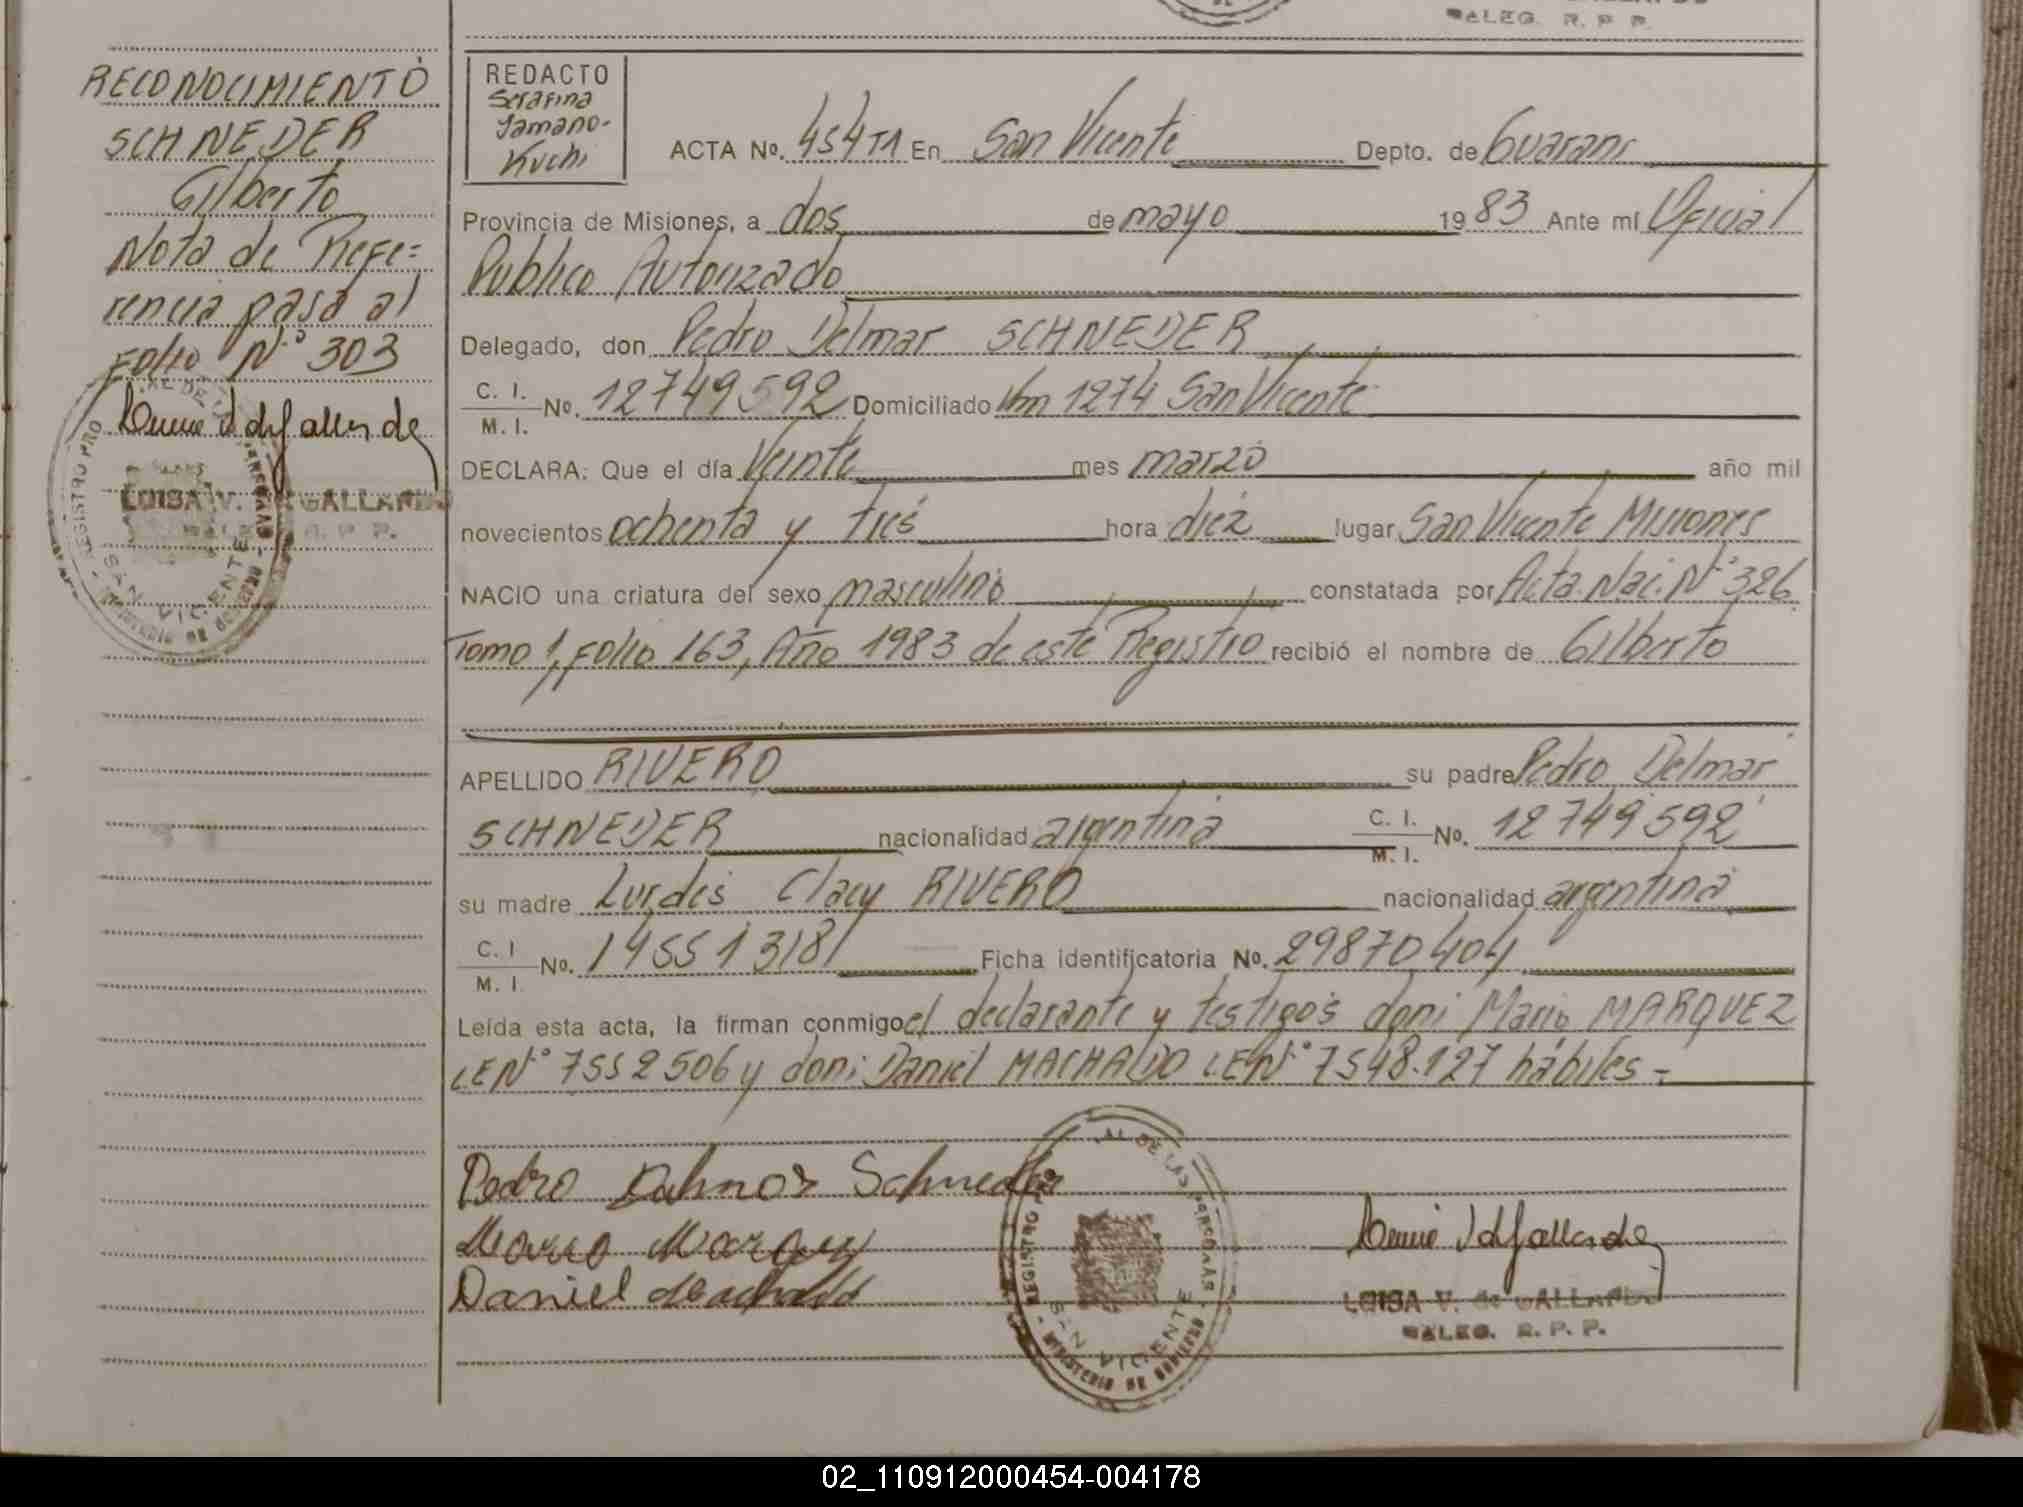 RECONOCIMIENTO
SCHNEDER
Gilberto
Nota de Refe=
rencia pasa al
Folio N° 303
LUISA V. de GALLARDO
R. P. P.
REGISTRO PRO AL DE LAS PERSONAS
SAN VICENTE
MINISTERIO DE GOBIERNO
DALEG. R. P. P.
REDACTO
Serafina
Jamano-
Kuchi
ACTA No. 454 T1 En San Vicente Depto. de Guarani
Provincia de Misiones, a dos de mayo 1983 Ante mí Oficial
Publico Autorizado
Delegado, don Pedro Delmar SCHNEDER
C. I.
M. I. No. 12749592 Domiciliado Km 1274 San Vicente
DECLARA: Que el día Veinte mes marzo año mil
novecientos ochenta y tres hora diez lugar San Vicente Misiones
NACIO una criatura del sexo masculino constatada por Acta Nac. N° 326
Tomo 1, Folio 163, Año 1983 de este Registro recibió el nombre de Gilberto
APELLIDO RIVERO su padre Pedro Delmar
SCHNEDER nacionalidad argentina C. I. M. I. No. 12749592
su madre Lurdes Clacy RIVERO nacionalidad argentina
C. I M. I No. 14551318 Ficha identificatoria No. 29870404
Leída esta acta, la firman conmigo el declarante y testigos don: Mario MARQUEZ
LEN° 7552506 y don: Daniel MACHADO LEN° 7548.127 hábiles -
Pedro Delmar Schneder
Mario Marquez
Daniel Machado
REGISTRO PRO AL DE LAS PERSONAS
SAN VICENTE
MINISTERIO DE GOBIERNO
LUISA V. de GALLARDO
DALEG. R. P. P.
02_110912000454-004178